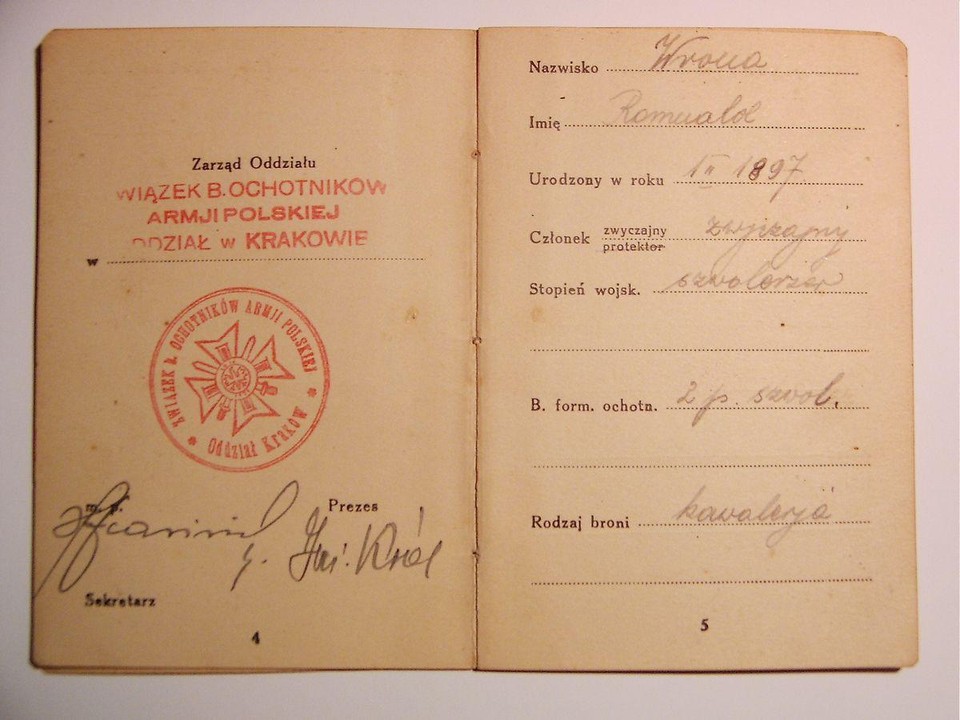 Zarząd Oddziału
WIĄZEK B. OCHOTNIKÓW
ARMJI POLSKIEJ
ODZIAŁ w KRAKOWIE
w
ZWIĄZEK B. OCHOTNIKÓW ARMJI POLSKIEJ
* Oddział Kraków *
m. p.
Prezes
Inż. Król
Sekretarz
4
Nazwisko Wrona
Imię Romuald
Urodzony w roku 1897
Członek zwyczajny zwyczajny
protektor
Stopień wojsk. szwoleżer
B. form. ochotn. 2 p. szwol.
Rodzaj broni kawalerja
5